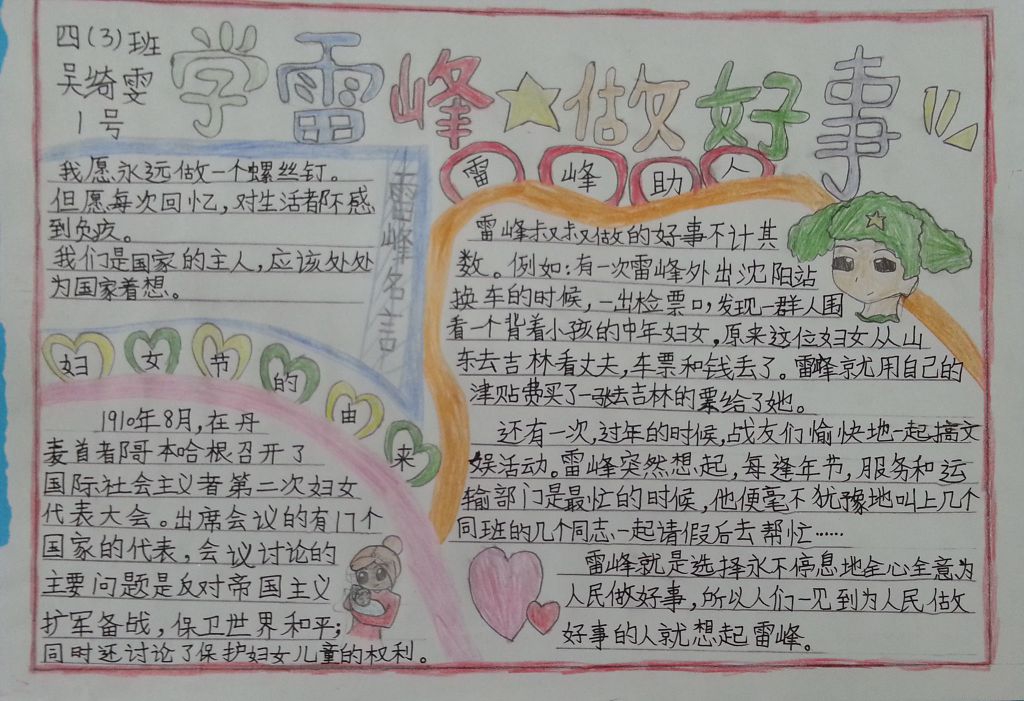 四(3)班
吴绮雯
1号
学雷峰做好事
我愿永远做一个螺丝钉。
但愿每次回忆,对生活都不感
到负疚。
我们是国家的主人,应该处处
为国家着想。
雷峰名言
妇女节的由来
1910年8月,在丹
麦首者都哥本哈根召开了
国际社会主义者第二次妇女
代表大会。出席会议的有17个
国家的代表,会议讨论的
主要问题是反对帝国主义
扩军备战,保卫世界和平;
同时还讨论了保护妇女儿童的权利。
雷峰助人
雷峰叔叔做的好事不计其
数。例如:有一次雷峰外出沈阳站
换车的时候,一出检票口,发现一群人围
看一个背着小孩的中年妇女,原来这位妇女从山
东去吉林看丈夫,车票和钱丢了。雷峰就用自己的
津贴费买了一张去吉林的票给了她。
还有一次,过年的时候,战友们愉快地一起搞文
娱活动。雷峰突然想起,每逢年节,服务和运
输部门是最忙的时候,他便毫不犹豫地叫上几个
同班的几个同志一起请假后去帮忙……
雷峰就是选择永不停息地全心全意为
人民做好事,所以人们一见到为人民做
好事的人就想起雷峰。